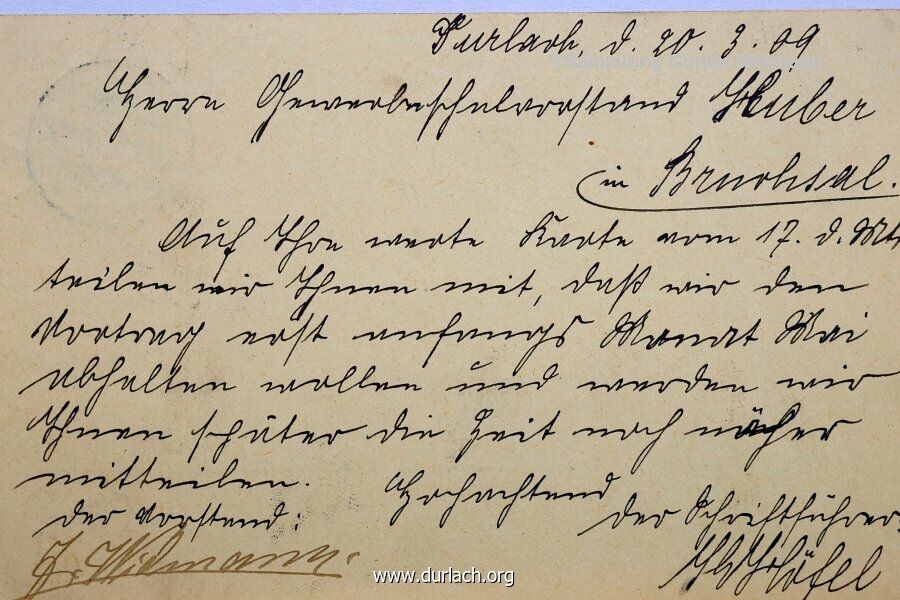 Durlach, d. 20. 3. 09
©Sammlung Günter
Herrn Gewerbeschulvorstand Huber
in Bruchsal.
Auf Ihre werte Karte vom 17. d. Mts
teilen wir Ihnen mit, daß wir den
Vortrag erst anfangs Monat Mai
abhalten wollen und werden wir
Ihnen später die Zeit noch näher
mitteilen. Hochachtend
der Vorstand: der Schriftführer:
Widmann.
www.durlach.org